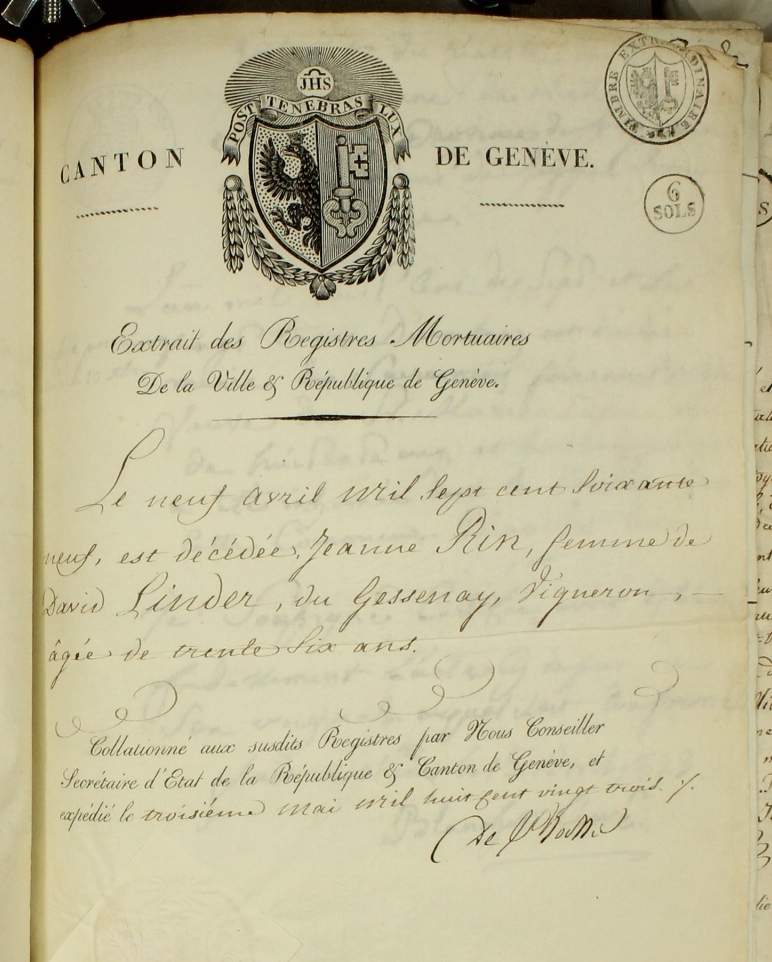 JHS
POST TENEBRAS LUX
TIMBRE EXTRAORDINAIRE
CANTON DE GENÈVE.
6
SOLS
Extrait des Registres Mortuaires
De la Ville & République de Genève.
Le neuf avril mil sept cent soixante
neuf, est décédée, Jeanne Rin, femme de
David Linder, du Gessenay, Vigneron, —
âgée de trente six ans.
Collationné aux susdits Registres par Nous Conseiller
Secrétaire d'Etat de la République & Canton de Genève, et
expédié le troisième mai mil huit cent vingt trois ./.